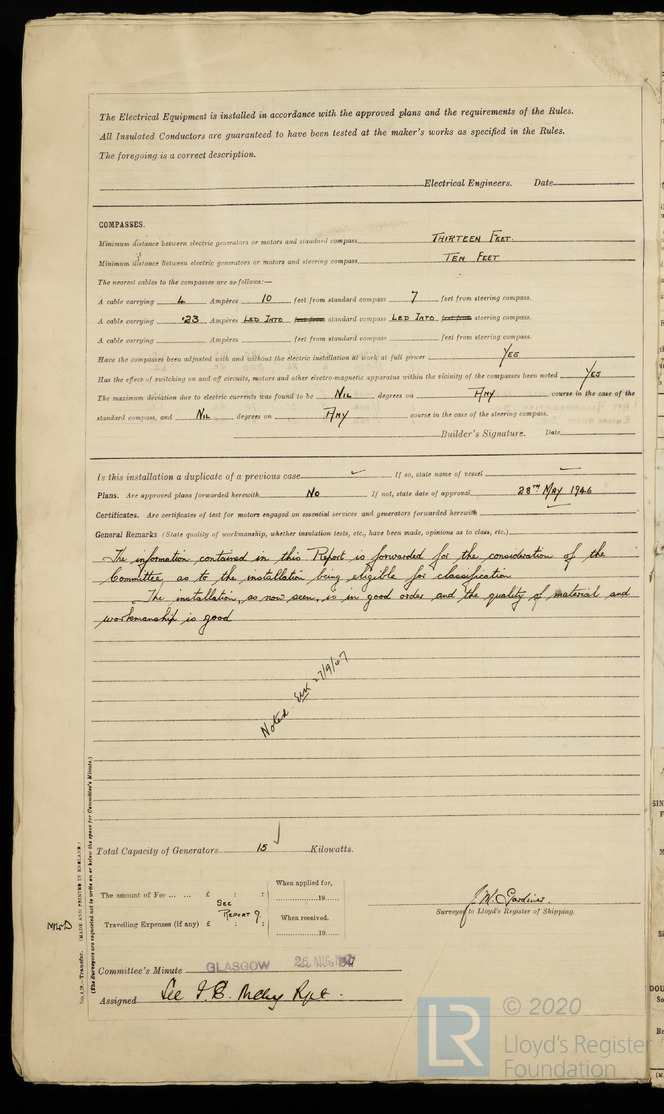 The Electrical Equipment is installed in accordance with the approved plans and the requirements of the Rules.
All Insulated Conductors are guaranteed to have been tested at the maker's works as specified in the Rules.
The foregoing is a correct description.
Electrical Engineers. Date
COMPASSES.
Minimum distance between electric generators or motors and standard compass THIRTEEN FEET.
Minimum distance between electric generators or motors and steering compass TEN FEET
The nearest cables to the compasses are as follows:—
A cable carrying 4 Ampères 10 feet from standard compass 7 feet from steering compass.
A cable carrying .23 Ampères LED INTO feet from standard compass LED INTO feet from steering compass.
A cable carrying Ampères feet from standard compass feet from steering compass.
Have the compasses been adjusted with and without the electric installation at work at full power YES
Has the effect of switching on and off circuits, motors and other electro-magnetic apparatus within the vicinity of the compasses been noted YES
The maximum deviation due to electric currents was found to be NIL degrees on ANY course in the case of the
standard compass, and NIL degrees on ANY course in the case of the steering compass.
Builder's Signature. Date
Is this installation a duplicate of a previous case ✓ If so, state name of vessel —
Plans. Are approved plans forwarded herewith No If not, state date of approval 28TH MAY 1946
Certificates. Are certificates of test for motors engaged on essential services and generators forwarded herewith
General Remarks (State quality of workmanship, whether insulation tests, etc., have been made, opinions as to class, etc.)
The information contained in this Report is forwarded for the consideration of the
Committee, as to the installation being eligible for classification
The installation, as now seen, is in good order and the quality of material and
workmanship is good
Noted 27/9/47
Total Capacity of Generators 15 ✓ Kilowatts.
The amount of Fee ... ... £ : : When applied for,
SEE REPORT 9. 19
Travelling Expenses (if any) £ : : When received.
19
J.W. Gardiner.
Surveyor to Lloyd's Register of Shipping.
Committee's Minute GLASGOW 26 AUG 1947
Assigned See F.E. Mchy Rpt.
(MADE AND PRINTED IN ENGLAND.)
Transfer.
(The Surveyors are requested not to write on or below the space for Committee's Minute.)
LR
© 2020
Lloyd's Register
Foundation